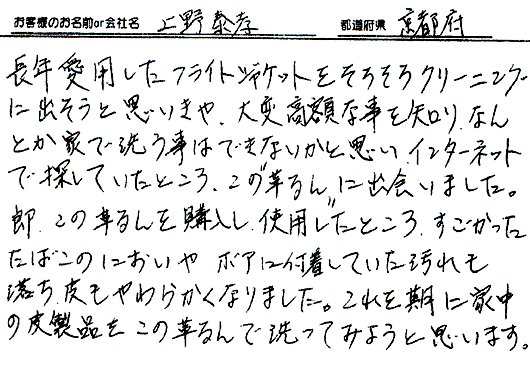 お客様のお名前or会社名 上野泰孝 都道府県 京都府
長年愛用したフライトジャケットをそろそろクリーニング
に出そうと思いきや、大変高額な事を知り、なん
とか家で洗う事はできないかと思い、インターネット
で探していたところ、この"革るん"に出会いました。
即、この革るんを購入し、使用したところ、すごかった
たばこのにおいや ボアに付着していた汚れも
落ち、皮もやわらかくなりました。これを期に家中
の皮製品をこの革るんで洗ってみようと思います。